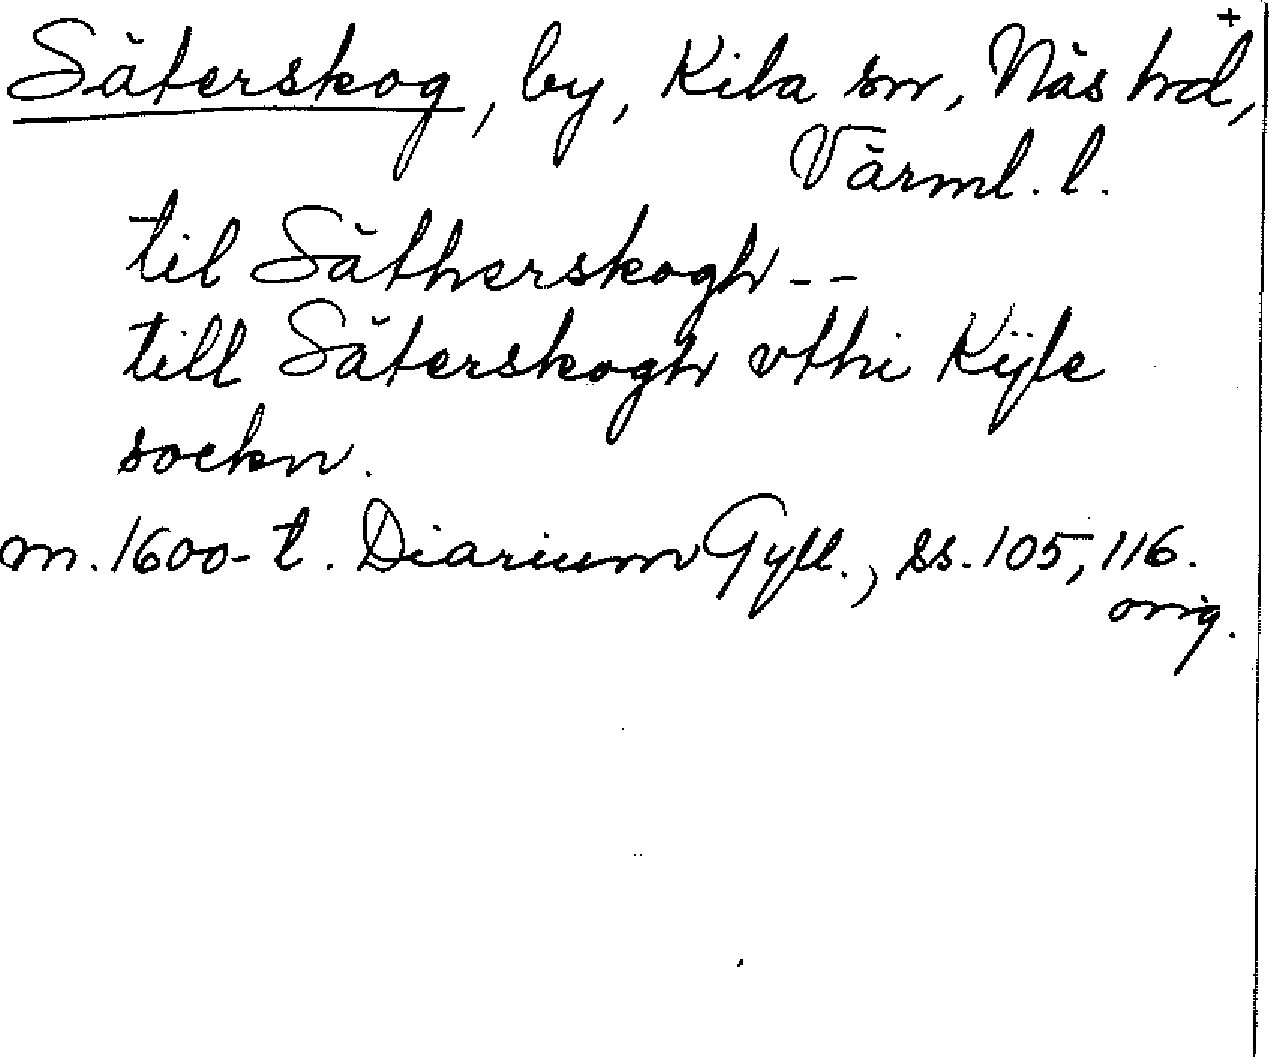 Säterskog, by, Kila sn, Näs hd, +
Värml. l.
til Sätherskogh - -
till Säterskogh vthi Kÿle
sockn.
m. 1600-t. Diarium Gyll., ss. 105, 116.
orig.